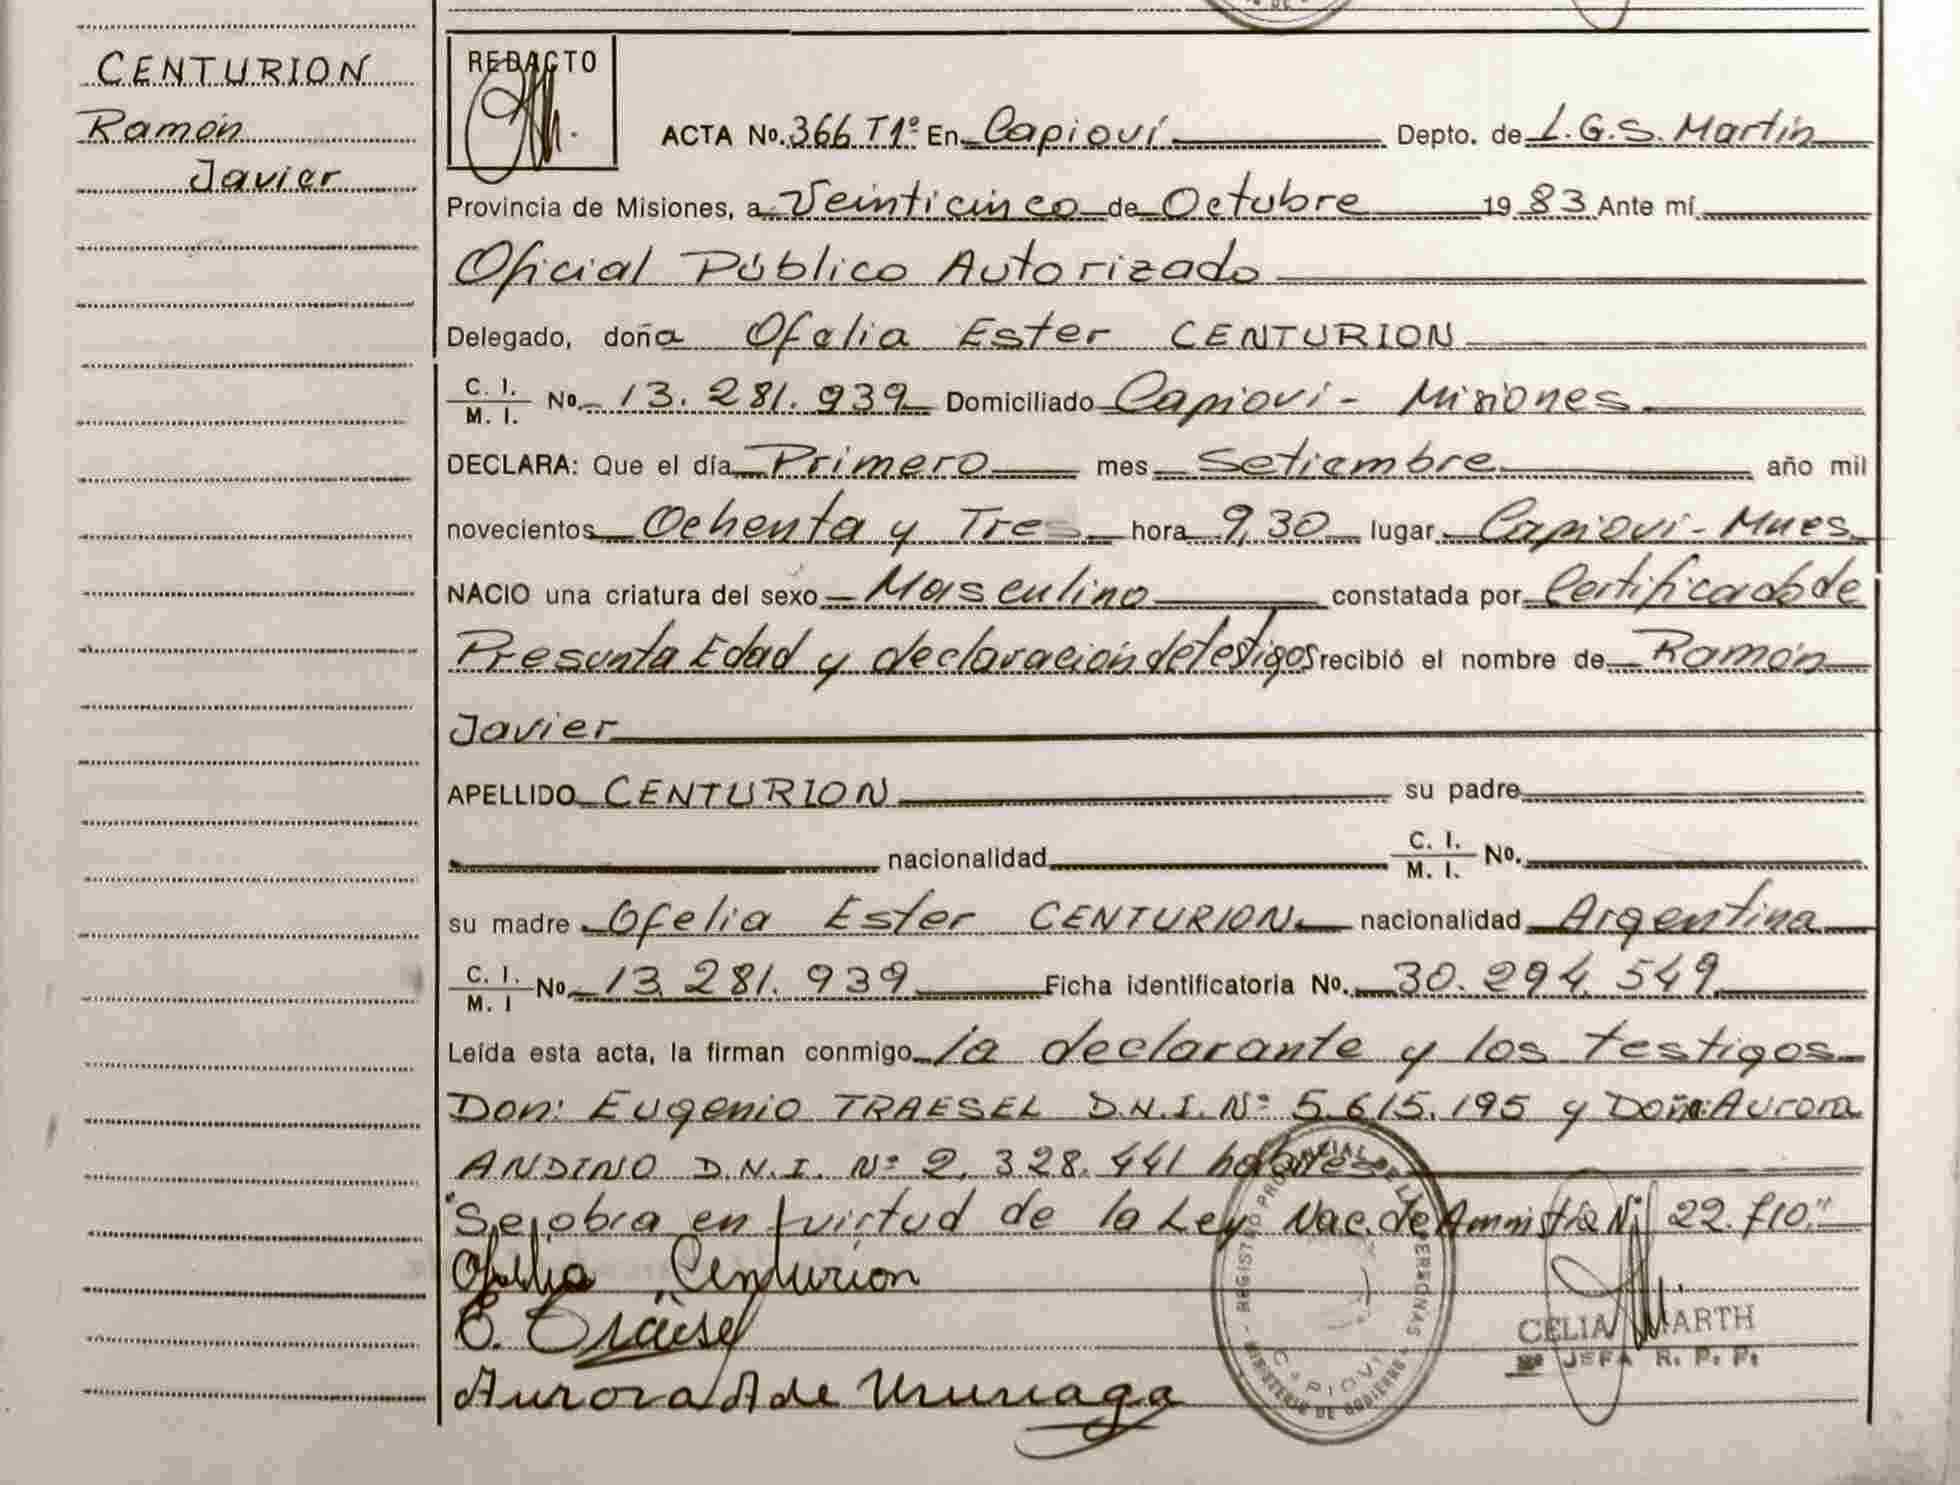 CENTURION
Ramón
Javier
REDACTO
ACTA No. 366 T1º En Capioví Depto. de L.G.S. Martín
Provincia de Misiones, a Veinticinco de Octubre 1983 Ante mí
Oficial Público Autorizado
Delegado, doña Ofelia Ester CENTURION
C. I. / M. I. No. 13.281.939 Domiciliado Capioví - Misiones
DECLARA: Que el día Primero mes Setiembre año mil
novecientos Ochenta y Tres hora 9,30 lugar Capioví - Mnes
NACIO una criatura del sexo Masculino constatada por Certificado de
Presunta Edad y declaración de testigos recibió el nombre de Ramón
Javier
APELLIDO CENTURION su padre
nacionalidad C. I. / M. I. No.
su madre Ofelia Ester CENTURION nacionalidad Argentina
C. I. / M. I No 13.281.939 Ficha identificatoria No. 30.294.549
Leída esta acta, la firman conmigo la declarante y los testigos
Don: Eugenio TRAESEL D.N.I. Nº 5.615.195 y Doña: Aurora
ANDINO D.N.I. Nº 2.328.441 hábiles
"Se labra en virtud de la Ley Nac. de Amnistía Nº 22.710."
Ofelia Centurion
E. Träesel
Aurora A de
REGISTRO PROVINCIAL DE LAS PERSONAS
MINISTERIO DE GOBIERNO
CAPIOVI
CELIA MARTH
JEFA R. P. P.